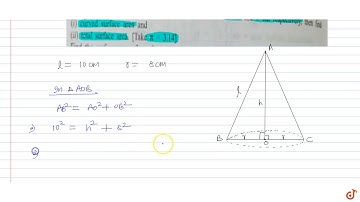 (i) curved surface area and
(ii) total surface area. [Take π = 3.14]
l = 10cm r = 8cm
In Δ AOB
AB² = AO² + OB²
10² = h² + 8²
A
l
h
B
r
O
r
C